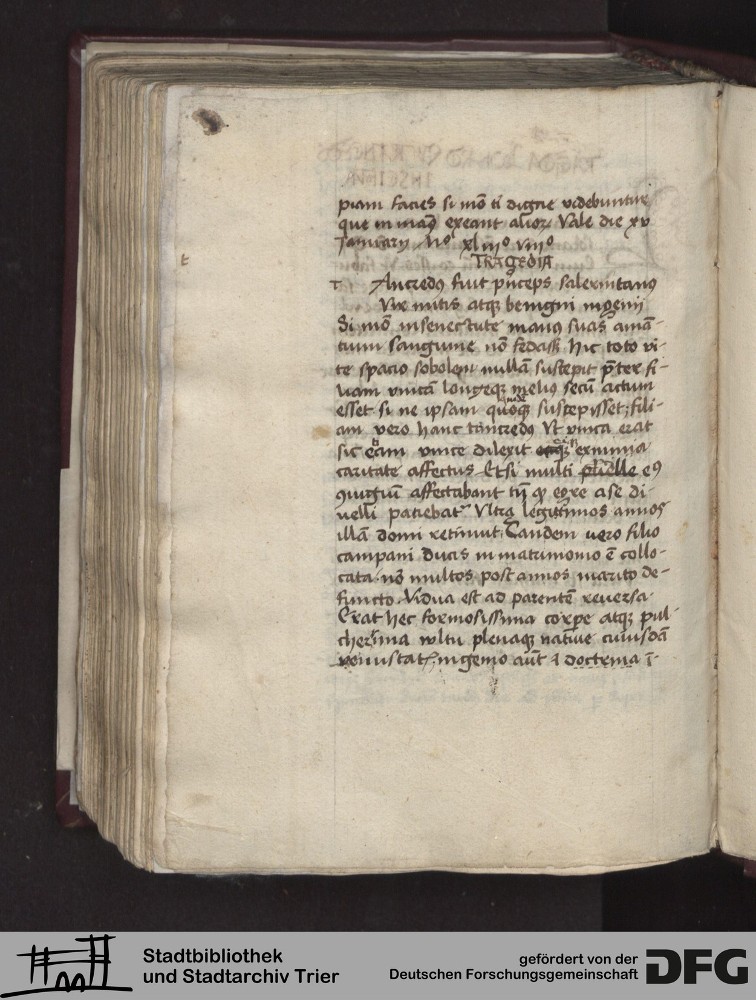 piam facies si mõ ti digne videbuntur
que in man9 exeant alior. Vale die xv
Januarij
TRAGEDIA
t
T Ancredus fuit prĩceps salernitanus
Vir mitis atq; benigni ingenij
Si mõ in senectute manus suas amã-
tium sanguine nõ fedass. hic toto vi-
te spacio sobolem nullã suscepit p̃ter fi-
liam vnicã longeq; melius secũ actum
esset si ne ipsam quoq; suscepisset; fili-
am vero hanc tancredus vt vnica erat
sic eam vnice dilexit eximia
caritate affectus Etsi multi puelle e9
9iugiũ affectabant tñ egre a se di-
uelli patiebat Vltra legittimos annos
illã domi retinuit. Tandem uero filio
campani ducis in matrimonio ẽ collo-
cata. nõ multos post annos marito de-
functo. Vidua est ad parentẽ reuersa
Erat hec formosissima corpe atq; pul-
cherima vultu plenaq; natiue cuiusdã
venustat. ingenio aũt doctrina ĩ-
Stadtbibliothek
und Stadtarchiv Trier
gefördert von der
Deutschen Forschungsgemeinschaft
DFG